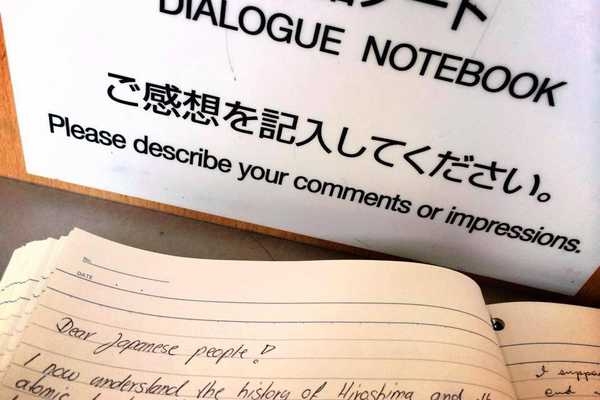 ノート
DIALOGUE NOTEBOOK
ご感想を記入してください。
Please describe your comments or impressions.
No.
DATE
Dear Japanese people!
I now understand the history of Hiroshima and the
atomic
I suppo
end